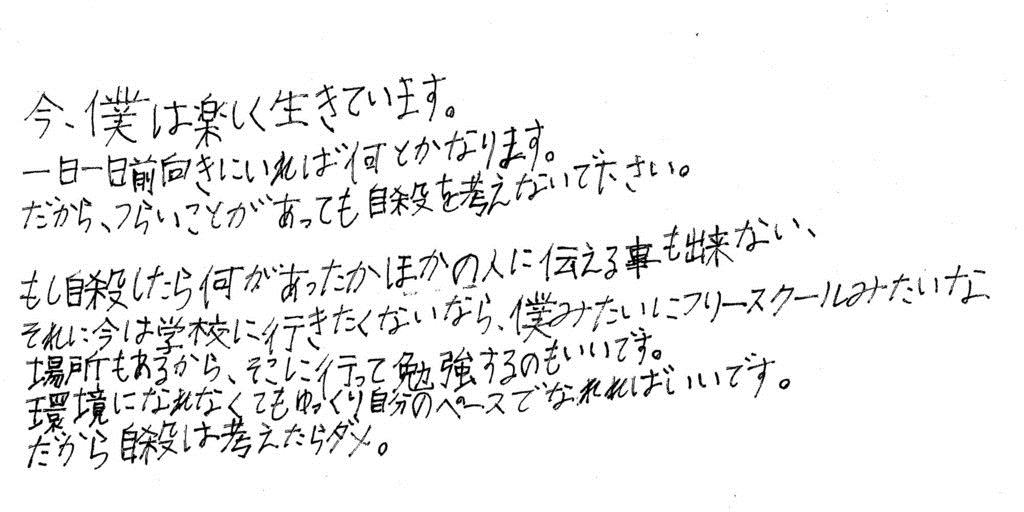 今、僕は楽しく生きています。
一日一日前向きにいれば何とかなります。
だから、つらいことがあっても自殺を考えないで下さい。
もし自殺したら何があったかほかの人に伝える事も出来ない、
それに今は学校に行きたくないなら、僕みたいにフリースクールみたいな、
場所もあるから、そこに行って勉強するのもいいです。
環境になれなくてもゆっくり自分のペースでなれればいいです。
だから自殺は考えたらダメ。